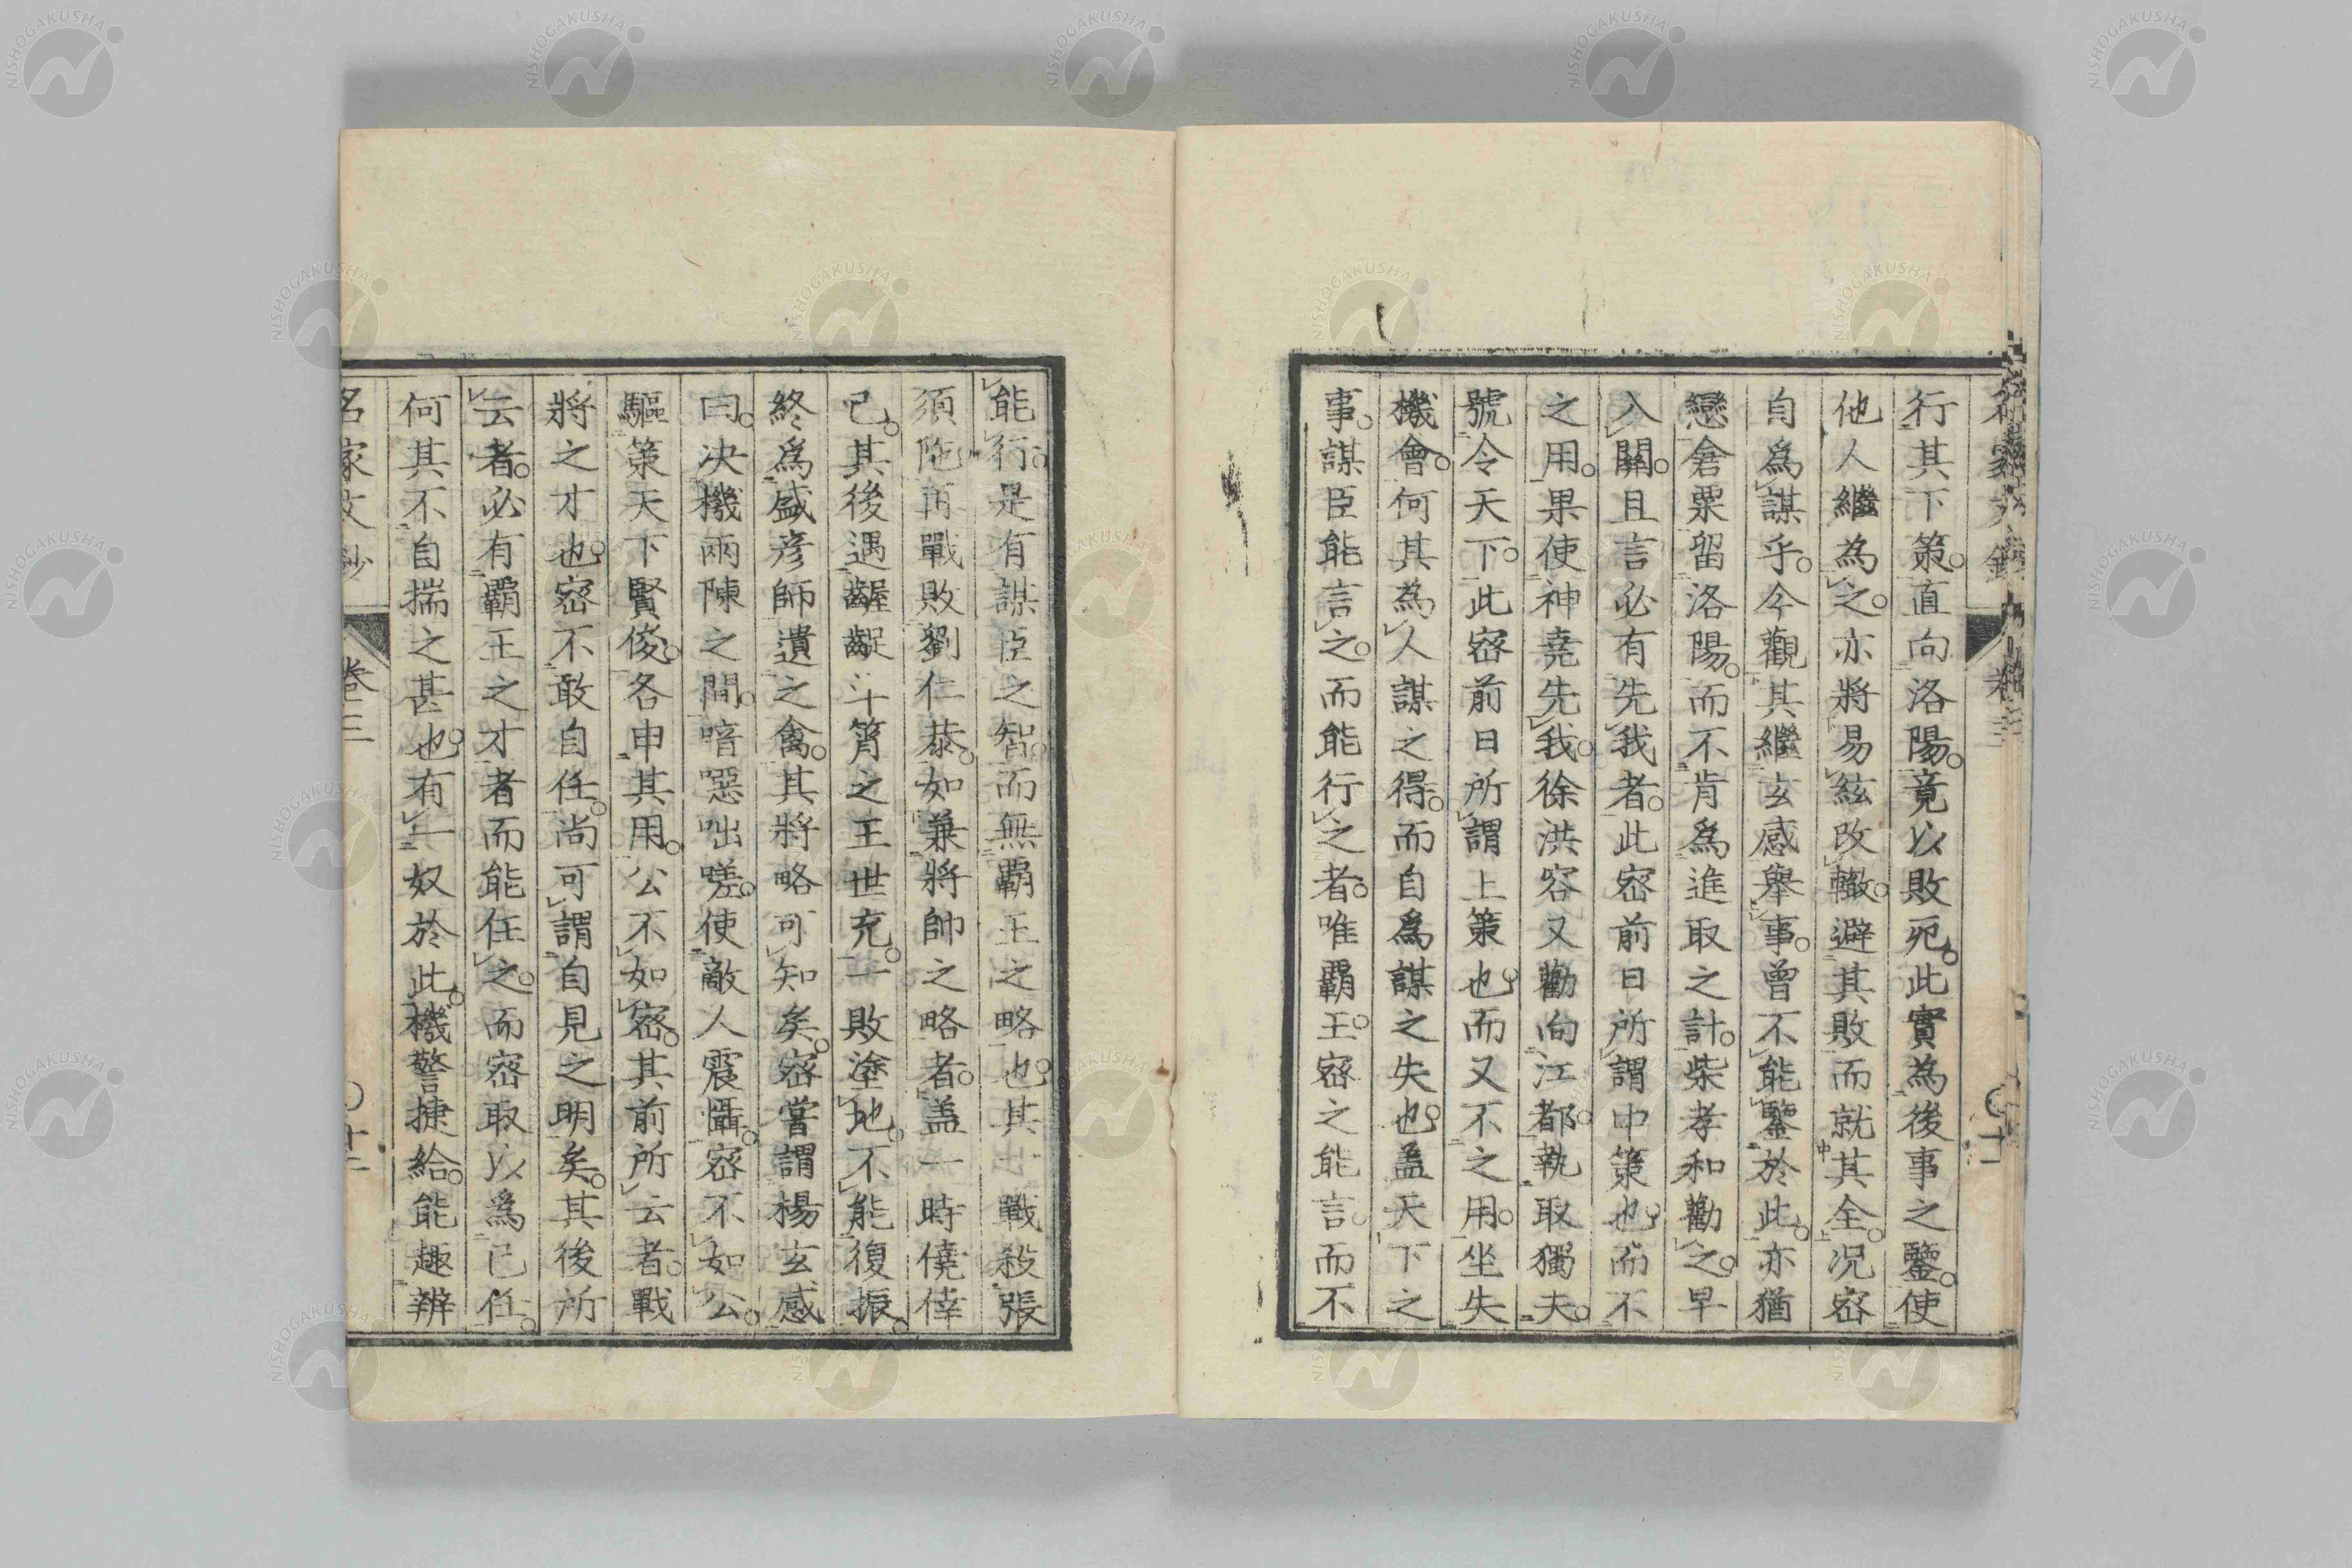 行其下策。直向洛陽。竟以敗死。此實為後事之鑒。使
他人繼為之。亦將易絃改轍。避其敗而就其全。况密
自爲謀乎。今觀其繼玄感舉事。曾不能鑒於此。亦猶
戀倉粟留洛陽。而不肯爲進取之計。柴孝和勸之。早
入關。且言必有先我者。此密前日所謂中策也。而不
之用。果使神堯先我。徐洪容又勸向江都。執取獨夫。
號令天下。此密前日所謂上策也。而又不之用。坐失
機會。何其為人謀之得。而自爲謀之失也。盖天下之
事。謀臣能言之。而能行之者。唯覇王。密之能言。而不
能行。是有謀臣之智。而無覇王之略也。其戰殺張
須陁。再戰敗劉仁恭。如兼將帥之略者。盖一時僥倖
已。其後遇齷齪斗筲之王世充。一敗塗地。不能復振。
終爲盛彦師遺之禽。其將略可知矣。密嘗謂楊玄感
曰。决機兩陳之間。喑惡咄嗟。使敵人震懾。密不如公。
驅策天下賢俊。各申其用。公不如密。其前所云者。戰
將之才也。密不敢自任。尚可謂自見之明矣。其後所
云者。必有覇王之才者而能任之。而密取以爲已任。
何其不自揣之甚也。有一奴於此。機警捷給。能趣辨
名家文抄
卷三
十二
NISHOGAKUSHA